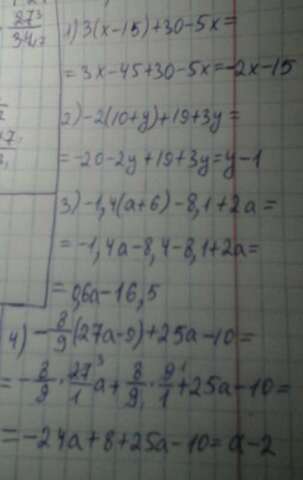 27³
34₁₇
1) 3(x-15)+30-5x=
=3x-45+30-5x=-2x-15
2) -2(10+y)+19+3y=
=-20-2y+19+3y=y-1
3) -1,4(a+6)-8,1+2a=
=-1,4a-8,4-8,1+2a=
=0,6a-16,5
4) -8/9(27a-9)+25a-10=
=-8/9·27³/1a+8/9₁·9¹/1+25a-10=
=-24a+8+25a-10=a-2